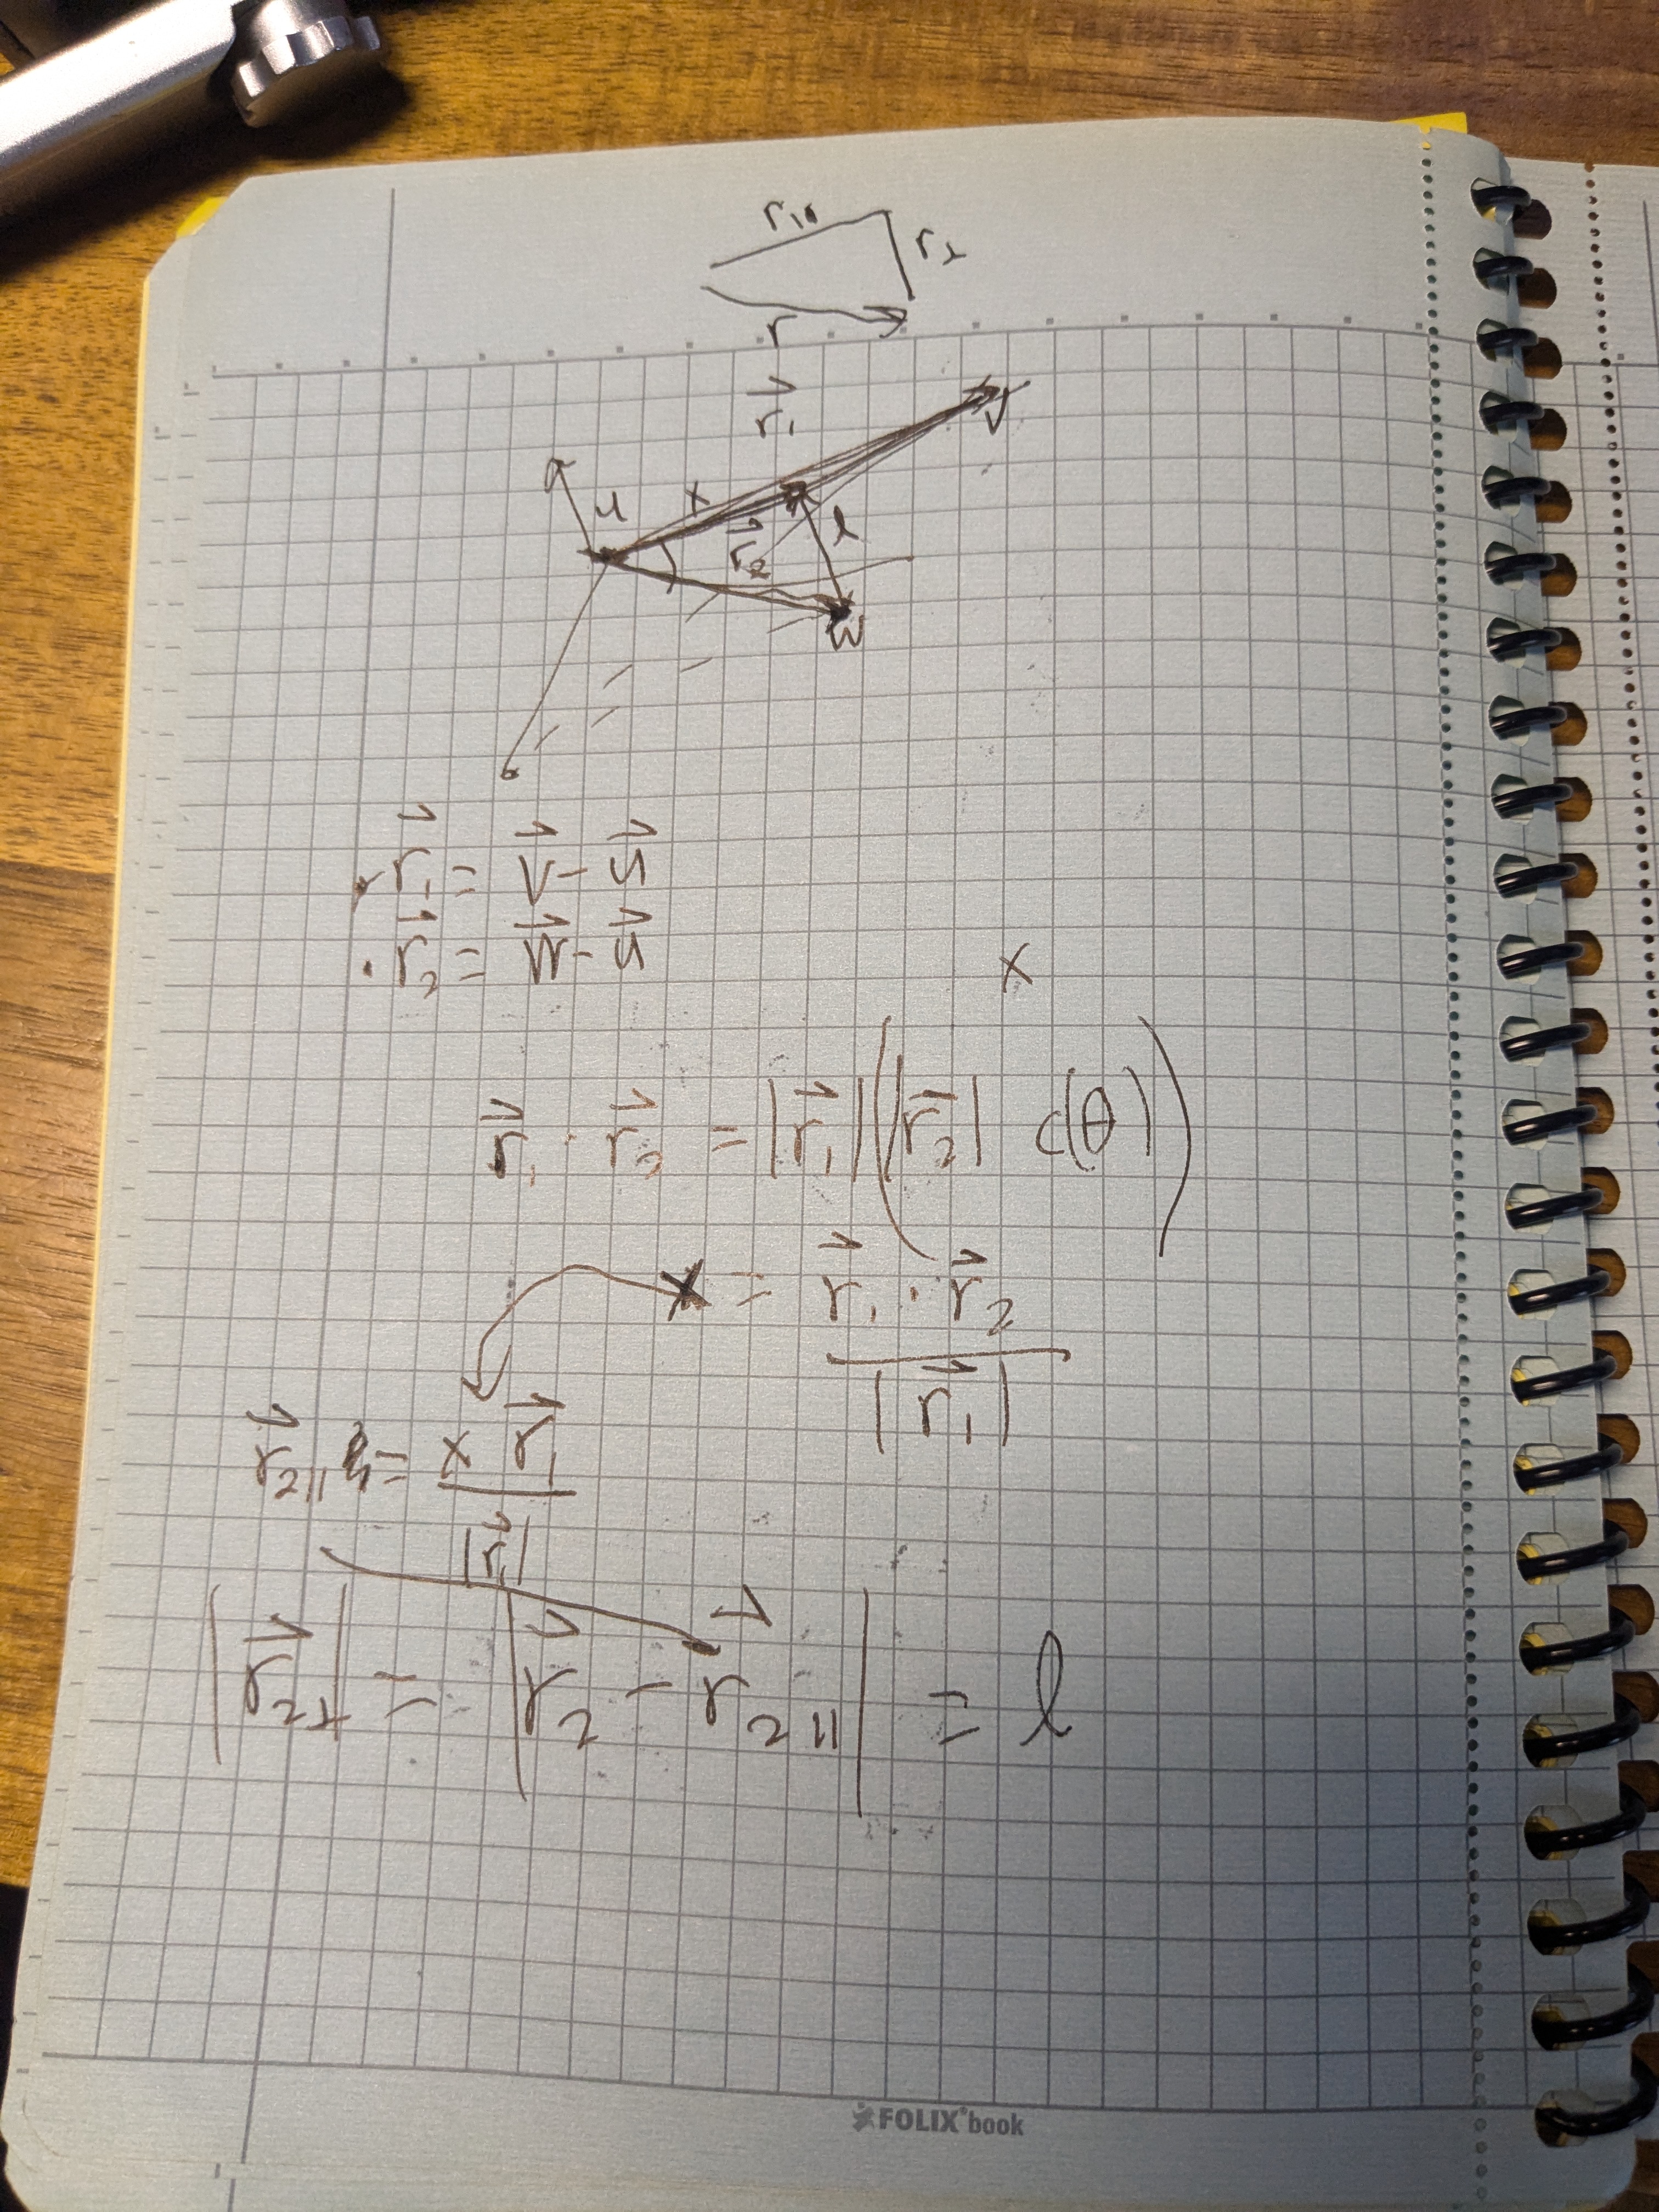 r||
r⊥
r
r⃗₁
v
u
x
l
r⃗₂
w
r⃗₁ = v⃗ - u⃗
r⃗₂ = w⃗ - u⃗
x
r⃗₁ · r⃗₂ = |r⃗₁| (|r⃗₂| c(θ))
x = r⃗₁ · r⃗₂ / |r⃗₁|
r⃗₂|| = x r⃗₁ / |r⃗₁|
|r⃗₂⊥| = |r⃗₂ - r⃗₂||| = l
FOLIX®book